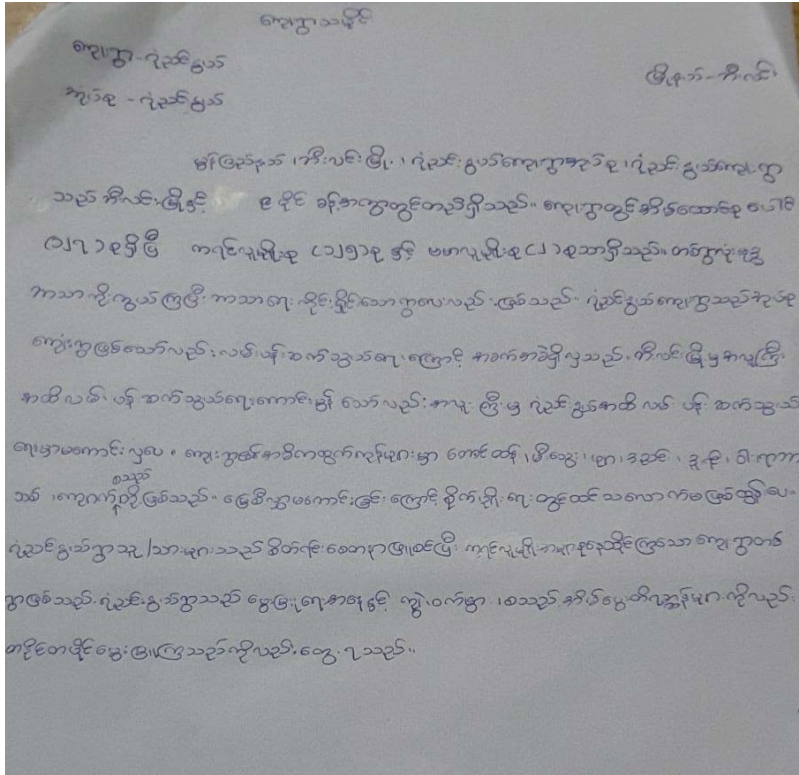 ကျေးရွာသမိုင်း
ကျေးရွာ - ဂုံညင်းနွယ်
မြို့နယ် - ဘီးလင်း
အုပ်စု - ဂုံညင်းနွယ်
မွန်ပြည်နယ် ၊ ဘီးလင်းမြို့ ၊ ဂုံညင်းနွယ်ကျေးရွာအုပ်စု ၊ ဂုံညင်းနွယ်ကျေးရွာ
သည် ဘီးလင်းမြို့နှင့် ၉ မိုင် ခန့်အကွာတွင်တည်ရှိသည်။ ကျေးရွာတွင်အိမ်ထောင်စု ပေါင်း
(၁၇) စုရှိပြီး ကရင်လူမျိုးစု (၁၅) စု နှင့် ဗမာလူမျိုးစု (၂) စုသာရှိသည်။ တစ်ရွာလုံး
ဘာသာ ကိုးကွယ်ကြပြီး ဘာသာရေး ကိုင်းရှိုင်းသော ရွာလေးလည်း ဖြစ်သည်။ ဂုံညင်းနွယ်ကျေးရွာသည် အုပ်စု
ကျေးရွာဖြစ်သော်လည်း လမ်းပန်းဆက်သွယ်ရေးကြောင့် အခက်အခဲရှိလှသည်။ ဘီးလင်းမြို့မှ အလူကြီး
အထိ လမ်းပန်းဆက်သွယ်ရေးကောင်းမွန်သော်လည်း အလူကြီးမှ ဂုံညင်းနွယ်အထိ လမ်းပန်းဆက်သွယ်
ရေးမှာမကောင်းလှပေ။ ကျေးရွာ၏ အဓိကထွက်ကုန်များမှာ တောင်ထန်း ၊ မီးသွေး ၊ ၊ ဒညင်း ၊ ဒူးရင်း ၊ ဝါး
သစ် ၊ ကျောက် စသည်တို့ဖြစ်သည်။ မြေဆီလွှာမကောင်းခြင်းကြောင့် စိုက်ပျိုးရေးတွင်ထင်သလောက်မဖြစ်ထွန်းပေ။
ဂုံညင်းနွယ်ရွာသူ/သားများသည် စိတ်ရင်းစေတနာဖြူစင်ပြီး ကရင်လူမျိုးအများစုနေထိုင်ကြသော ကျေးရွာတစ်
ရွာဖြစ်သည်။ ဂုံညင်းနွယ်ရွာသည် မွေးမြူရေးအနေနှင့် ကျွဲ ၊ ဝက် ၊ နွား ၊ စသည့် အိမ်မွေးတိရစ္ဆာန်များကိုလည်း
တစ်နိုင်တစ်ပိုင်မွေးမြူကြသည်ကိုလည်း တွေ့ရသည်။